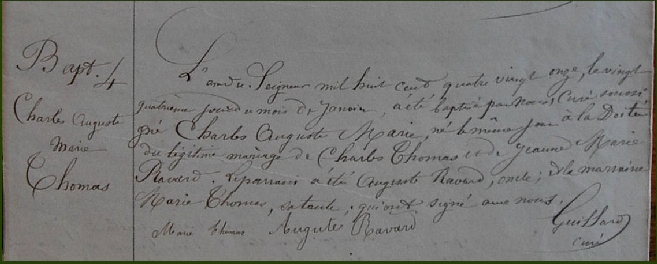 Bapt. 4
Charles Auguste
Marie
Thomas
L'an du Seigneur mil huit cent quatre vingt onze, le vingt
quatrième jour du mois de Janvier, a été baptisé par nous, Curé soussi
gné Charles Auguste Marie, né le même jour à la
du légitime mariage de Charles Thomas et de Jeanne Marie
Ravard. Le parrain a été Auguste Ravard, oncle; et la marraine
Marie Thomas, sa tante, qui ont signé avec nous.
Marie Thomas Auguste Ravard
Guissard
curé